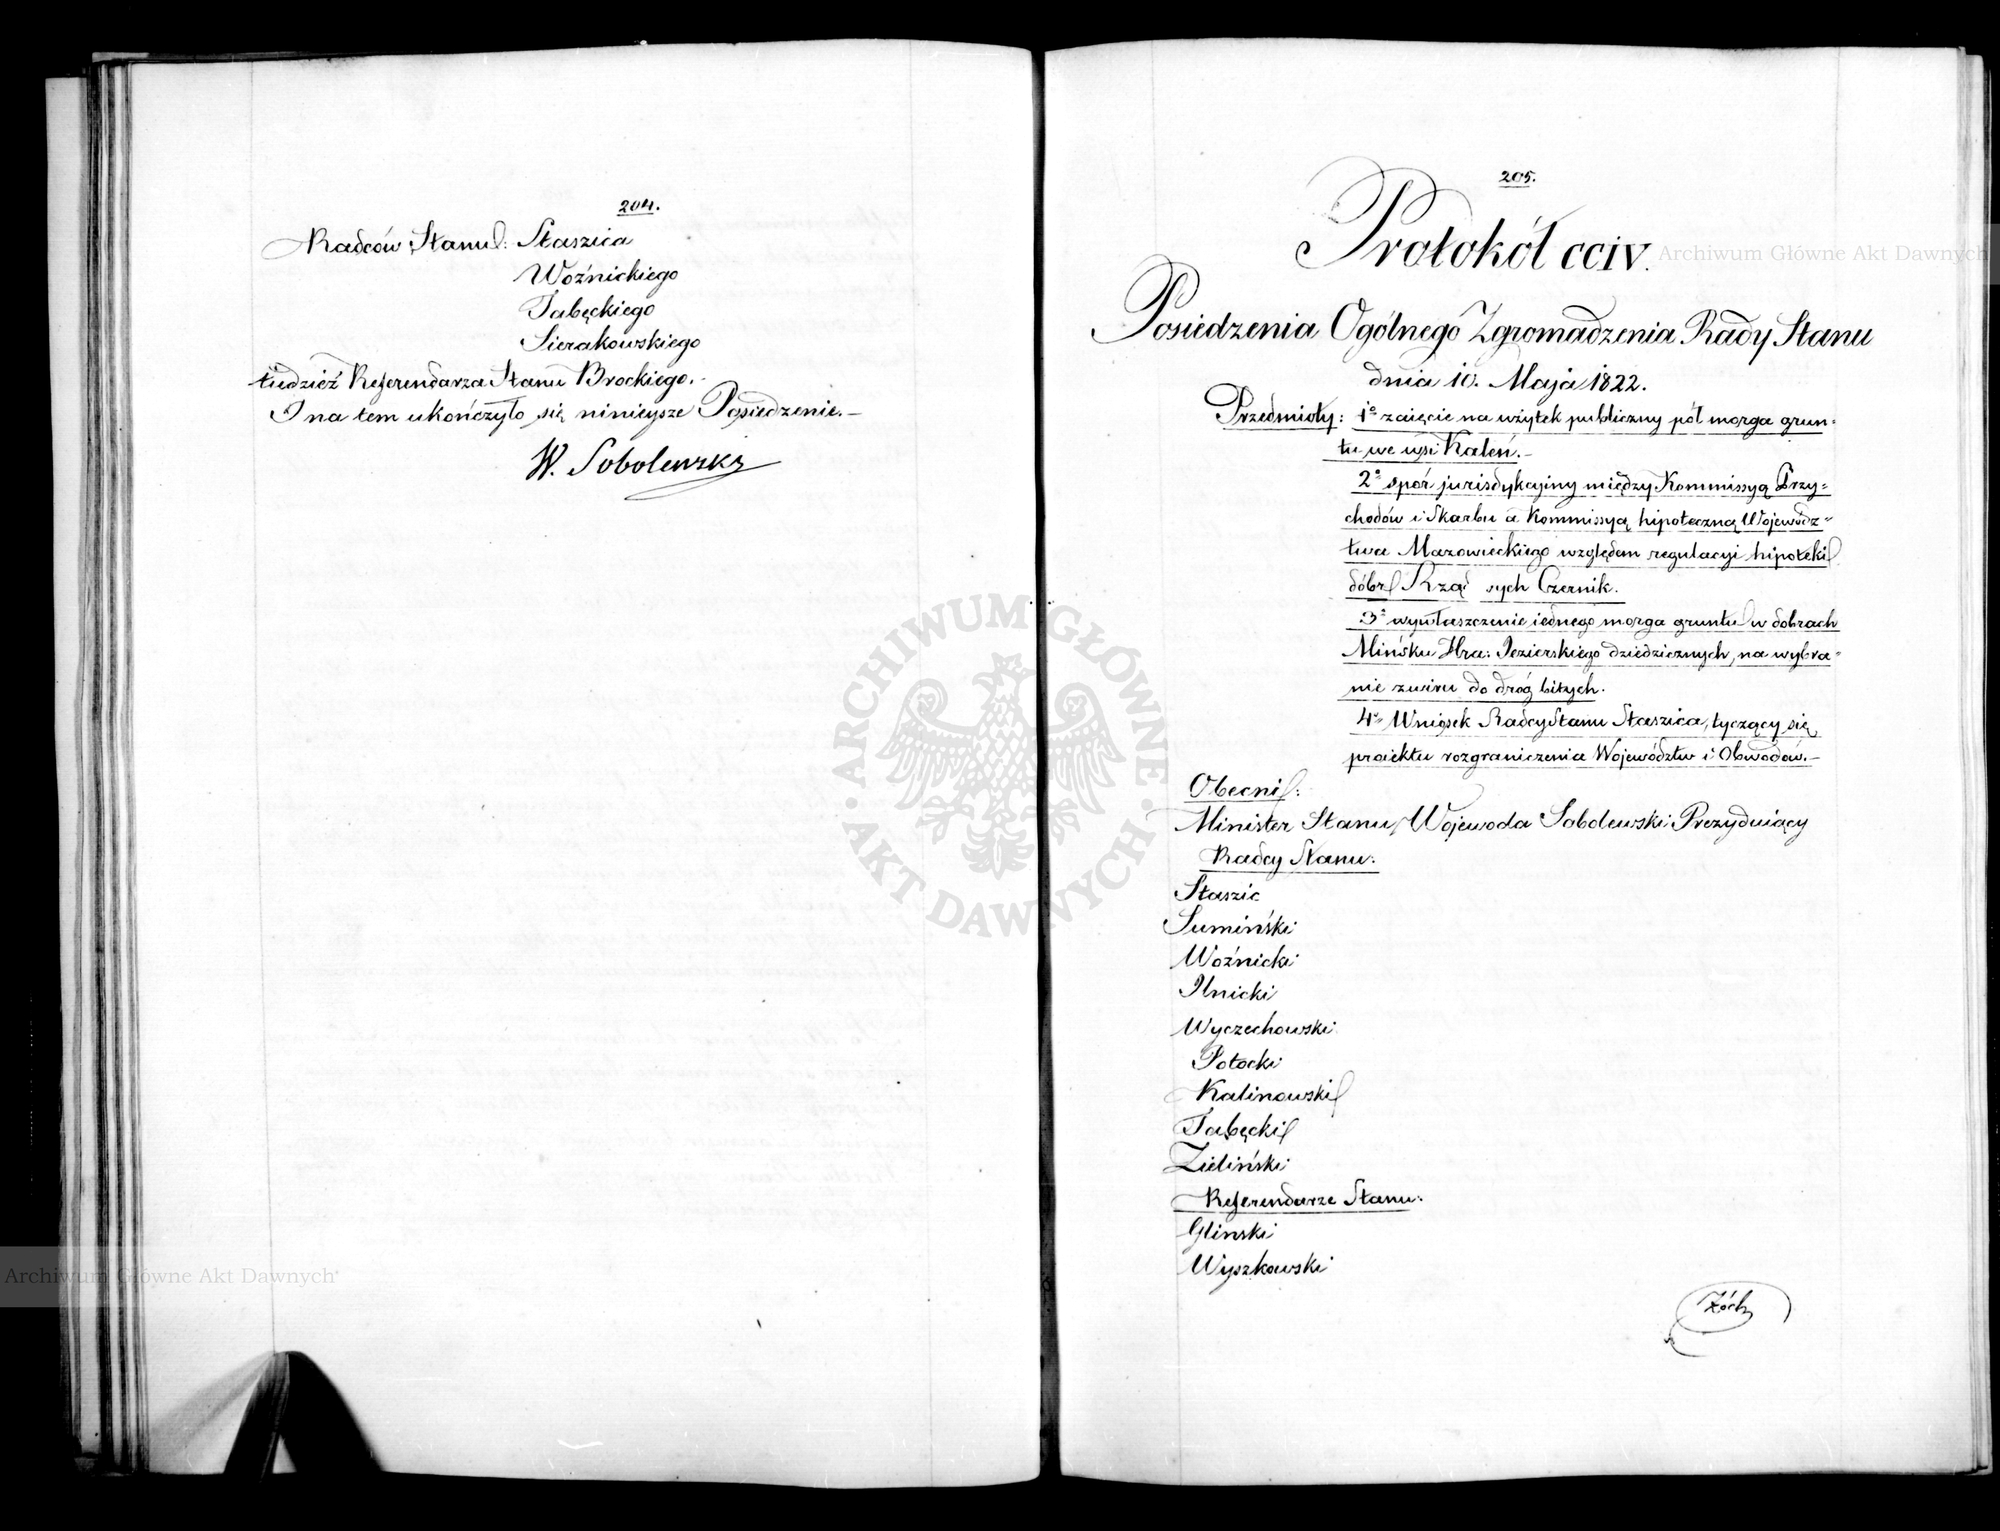 204.
Radców Stanu: Staszica
Woźnickiego
Tabęckiego
Sierakowskiego
tudzież Referendarza Stanu Brockiego.-
I na tem ukończyło się ninieysze Posiedzenie.-
W. Sobolewski
205.
Protokół CCIV.
Posiedzenia Ogólnego Zgromadzenia Rady Stanu
dnia 10. Maja 1822.
Przedmioty: 1° zaięcie na użytek publiczny pół morga grun-
tu we wsi Kaleń.-
2° spór jurisdykcyiny między Kommissyą Przy-
chodów i Skarbu a Kommissyą hipoteczną Wojewódz-
twa Mazowieckiego względem regulacyi hipoteki
dóbr Rząd sych Czernik.
3° wywłaszczenie iednego morga gruntu w dobrach
Mińsku Hra: Jezierskiego dziedzicznych, na wybra-
nie żwiru do dróg bitych.
4° Wniosek Radcy Stanu Staszica, tyczący się
proiektu rozgraniczenia Województw i Obwodów.-
Obecni:
Minister Stanu, Wojewoda Sobolewski Prezyduiący
Radcy Stanu:
Staszic
Sumiński
Woźnicki
Ilnicki
Wyczechowski
Potocki
Kalinowski
Tabęcki
Zieliński
Referendarze Stanu:
Glinski
Wyszkowski
Archiwum Główne Akt Dawnych
ARCHIWUM GŁÓWNE AKT DAWNYCH
Archiwum Główne Akt Dawnych